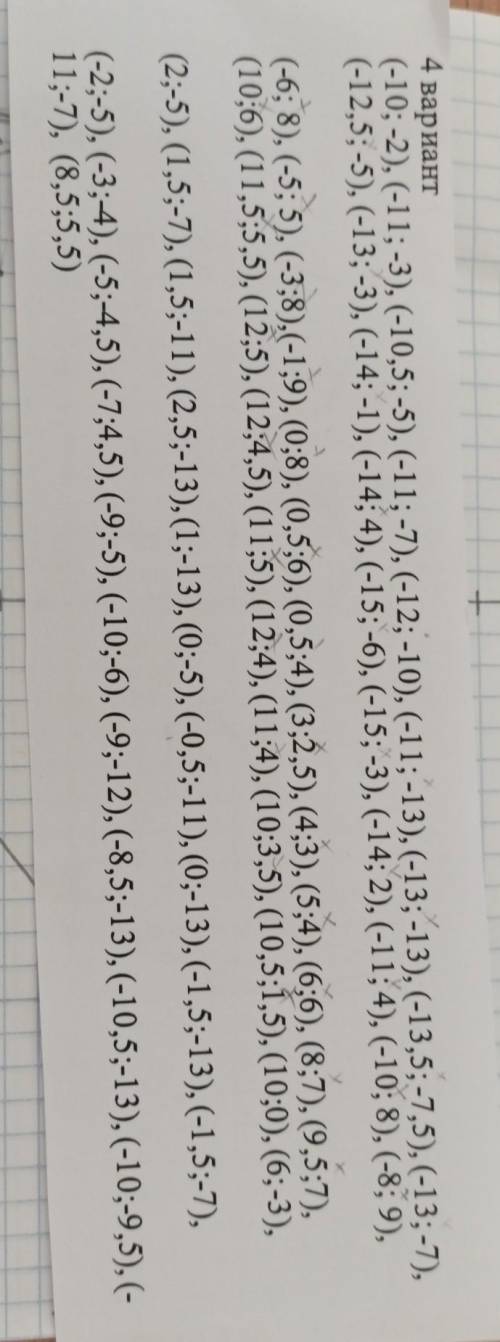 4 вариант
(-10; -2), (-11; -3), (-10,5; -5), (-11; -7), (-12; -10), (-11; -13), (-13; -13), (-13,5; -7,5), (-13; -7),
(-12,5; -5), (-13; -3), (-14; -1), (-14; 4), (-15; -6), (-15; -3), (-14; 2), (-11; 4), (-10; 8), (-8; 9),
(-6; 8), (-5; 5), (-3;8),(-1;9), (0;8), (0,5;6), (0,5;4), (3;2,5), (4;3), (5;4), (6;6), (8;7), (9,5;7),
(10;6), (11,5;5,5), (12;5), (12;4,5), (11;5), (12;4), (11;4), (10;3,5), (10,5;1,5), (10;0), (6;-3),
(2;-5), (1,5;-7), (1,5;-11), (2,5;-13), (1;-13), (0;-5), (-0,5;-11), (0;-13), (-1,5;-13), (-1,5;-7),
(-2;-5), (-3;-4), (-5;-4,5), (-7;4,5), (-9;-5), (-10;-6), (-9;-12), (-8,5;-13), (-10,5;-13), (-10;-9,5), (-
11;-7), (8,5;5,5)